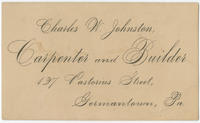 Charles W. Johnston,
Carpenter and Builder
127 Pastorius Street,
Germantown, Pa